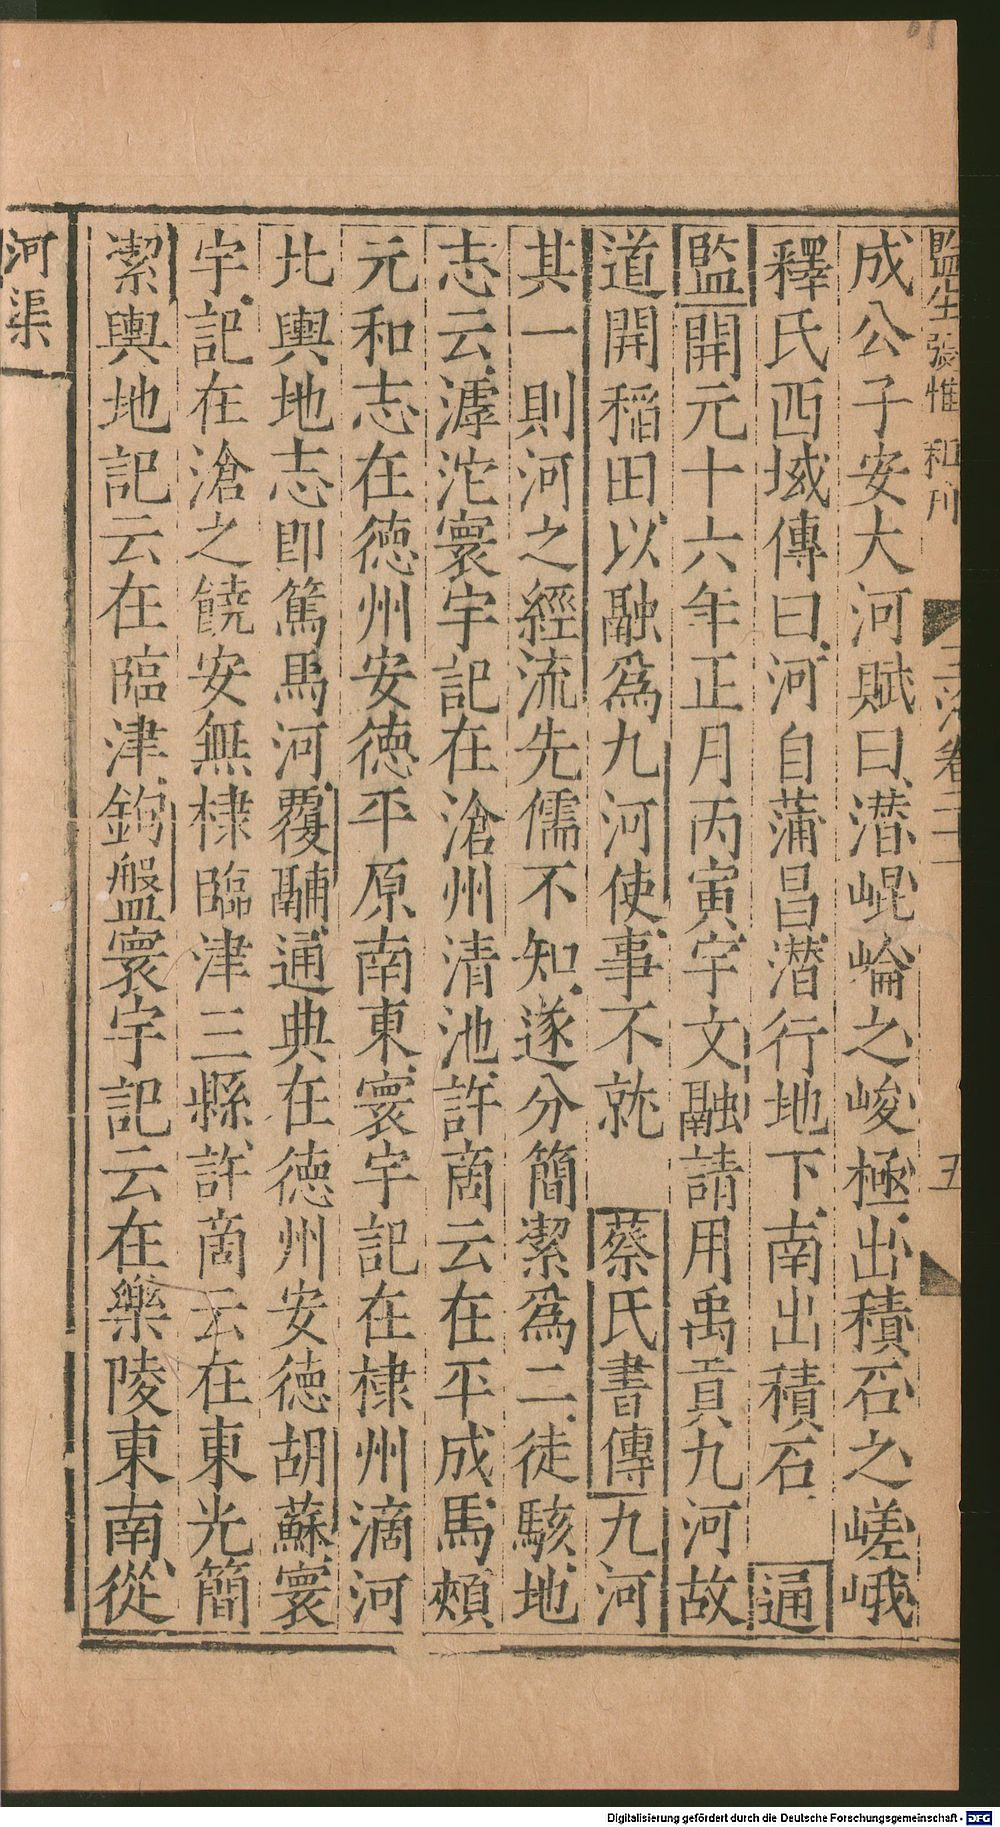 監生張惟和刊
玉海卷二十
五
成公子安大河賦曰潜崐崘之峻極出積石之嵯峨
釋氏西域傳曰河自蒲昌潜行地下南出積石 通
監開元十六年正月丙寅宇文融請用禹貢九河故
道開稲田以融爲九河使事不就 蔡氏書傳九河
其一則河之經流先儒不知遂分簡潔爲二徒駭地
志云滹沱寰宇記在滄州清池許商云在平成馬頰
元和志在德州安德平原南東寰宇記在棣州滴河
北輿地志即篤馬河覆鬴通典在德州安德胡蘇寰
宇記在滄之饒安無棣臨津三縣許商云在東光簡
潔輿地記云在臨津鉤盤寰宇記云在樂陵東南從
河渠
Digitalisierung gefördert durch die Deutsche Forschungsgemeinschaft - DFG